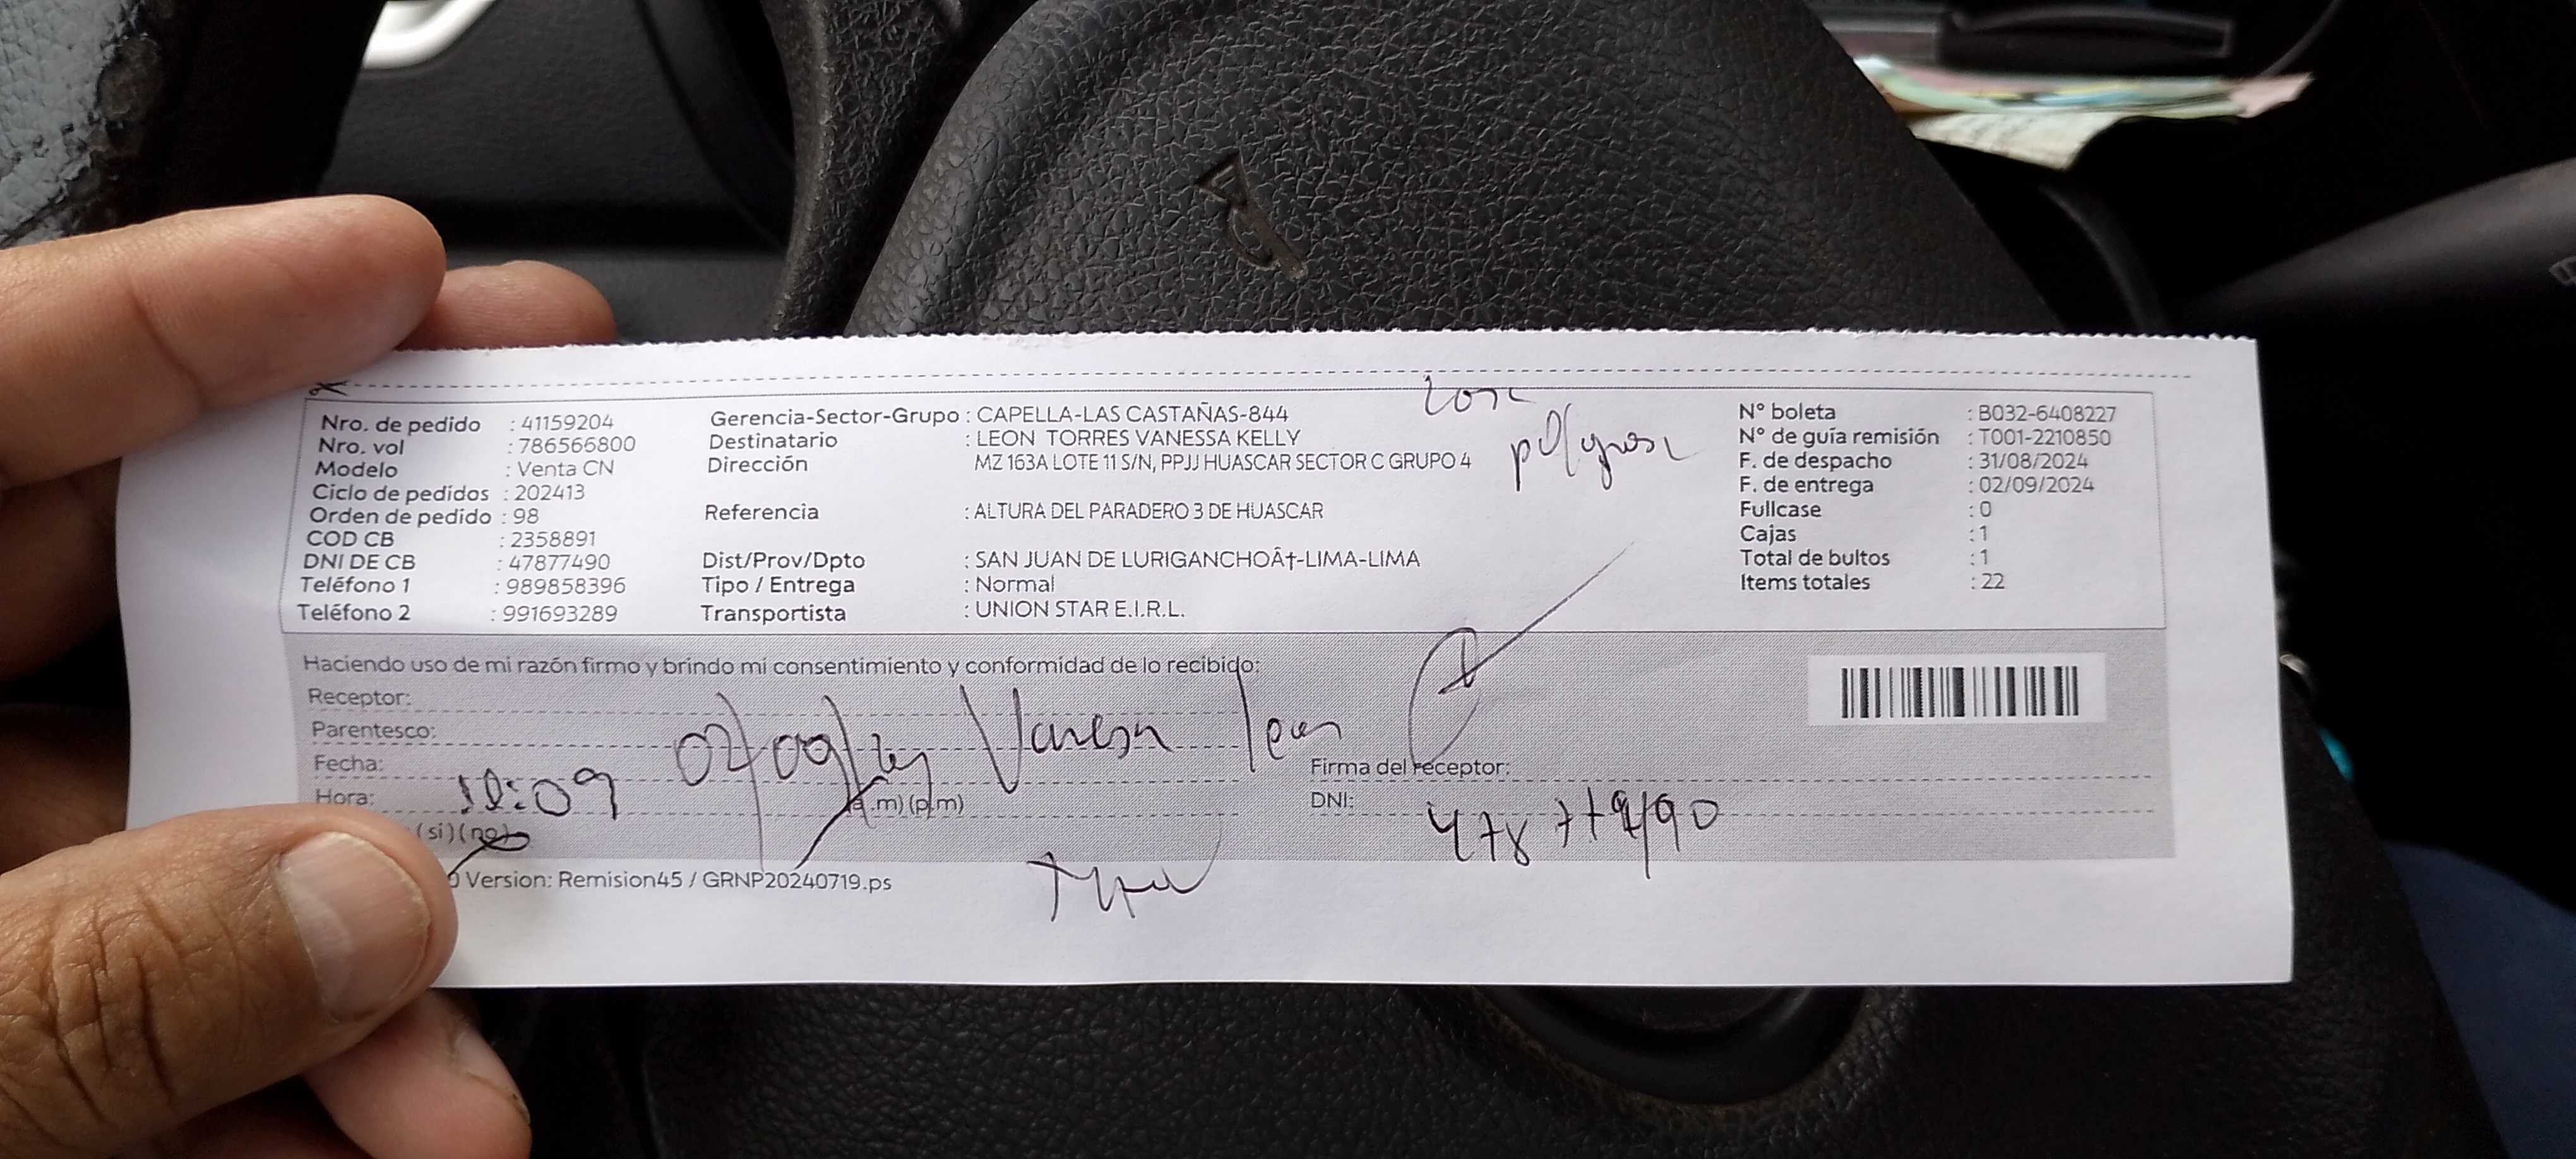 Zona
peligrosa
Nro. de pedido : 41159204 Gerencia-Sector-Grupo : CAPELLA-LAS CASTAÑAS-844 N° boleta : B032-6408227
Nro. vol : 786566800 Destinatario : LEON TORRES VANESSA KELLY N° de guía remisión : T001-2210850
Modelo : Venta CN Dirección MZ 163A LOTE 11 S/N, PPJJ HUASCAR SECTOR C GRUPO 4 F. de despacho : 31/08/2024
Ciclo de pedidos : 202413 F. de entrega : 02/09/2024
Orden de pedido : 98 Referencia : ALTURA DEL PARADERO 3 DE HUASCAR Fullcase : 0
COD CB : 2358891 Cajas : 1
DNI DE CB : 47877490 Dist/Prov/Dpto : SAN JUAN DE LURIGANCHOÂ†-LIMA-LIMA Total de bultos : 1
Teléfono 1 : 989858396 Tipo / Entrega : Normal Items totales : 22
Teléfono 2 : 991693289 Transportista : UNION STAR E.I.R.L.
Haciendo uso de mi razón firmo y brindo mi consentimiento y conformidad de lo recibido:
Receptor:
Parentesco: 02/09/24 Vanesa leon
Fecha: Firma del receptor:
Hora: :09 (a.m) (p.m) DNI:
(si) (no)
Version: Remision45 / GRNP20240719.ps